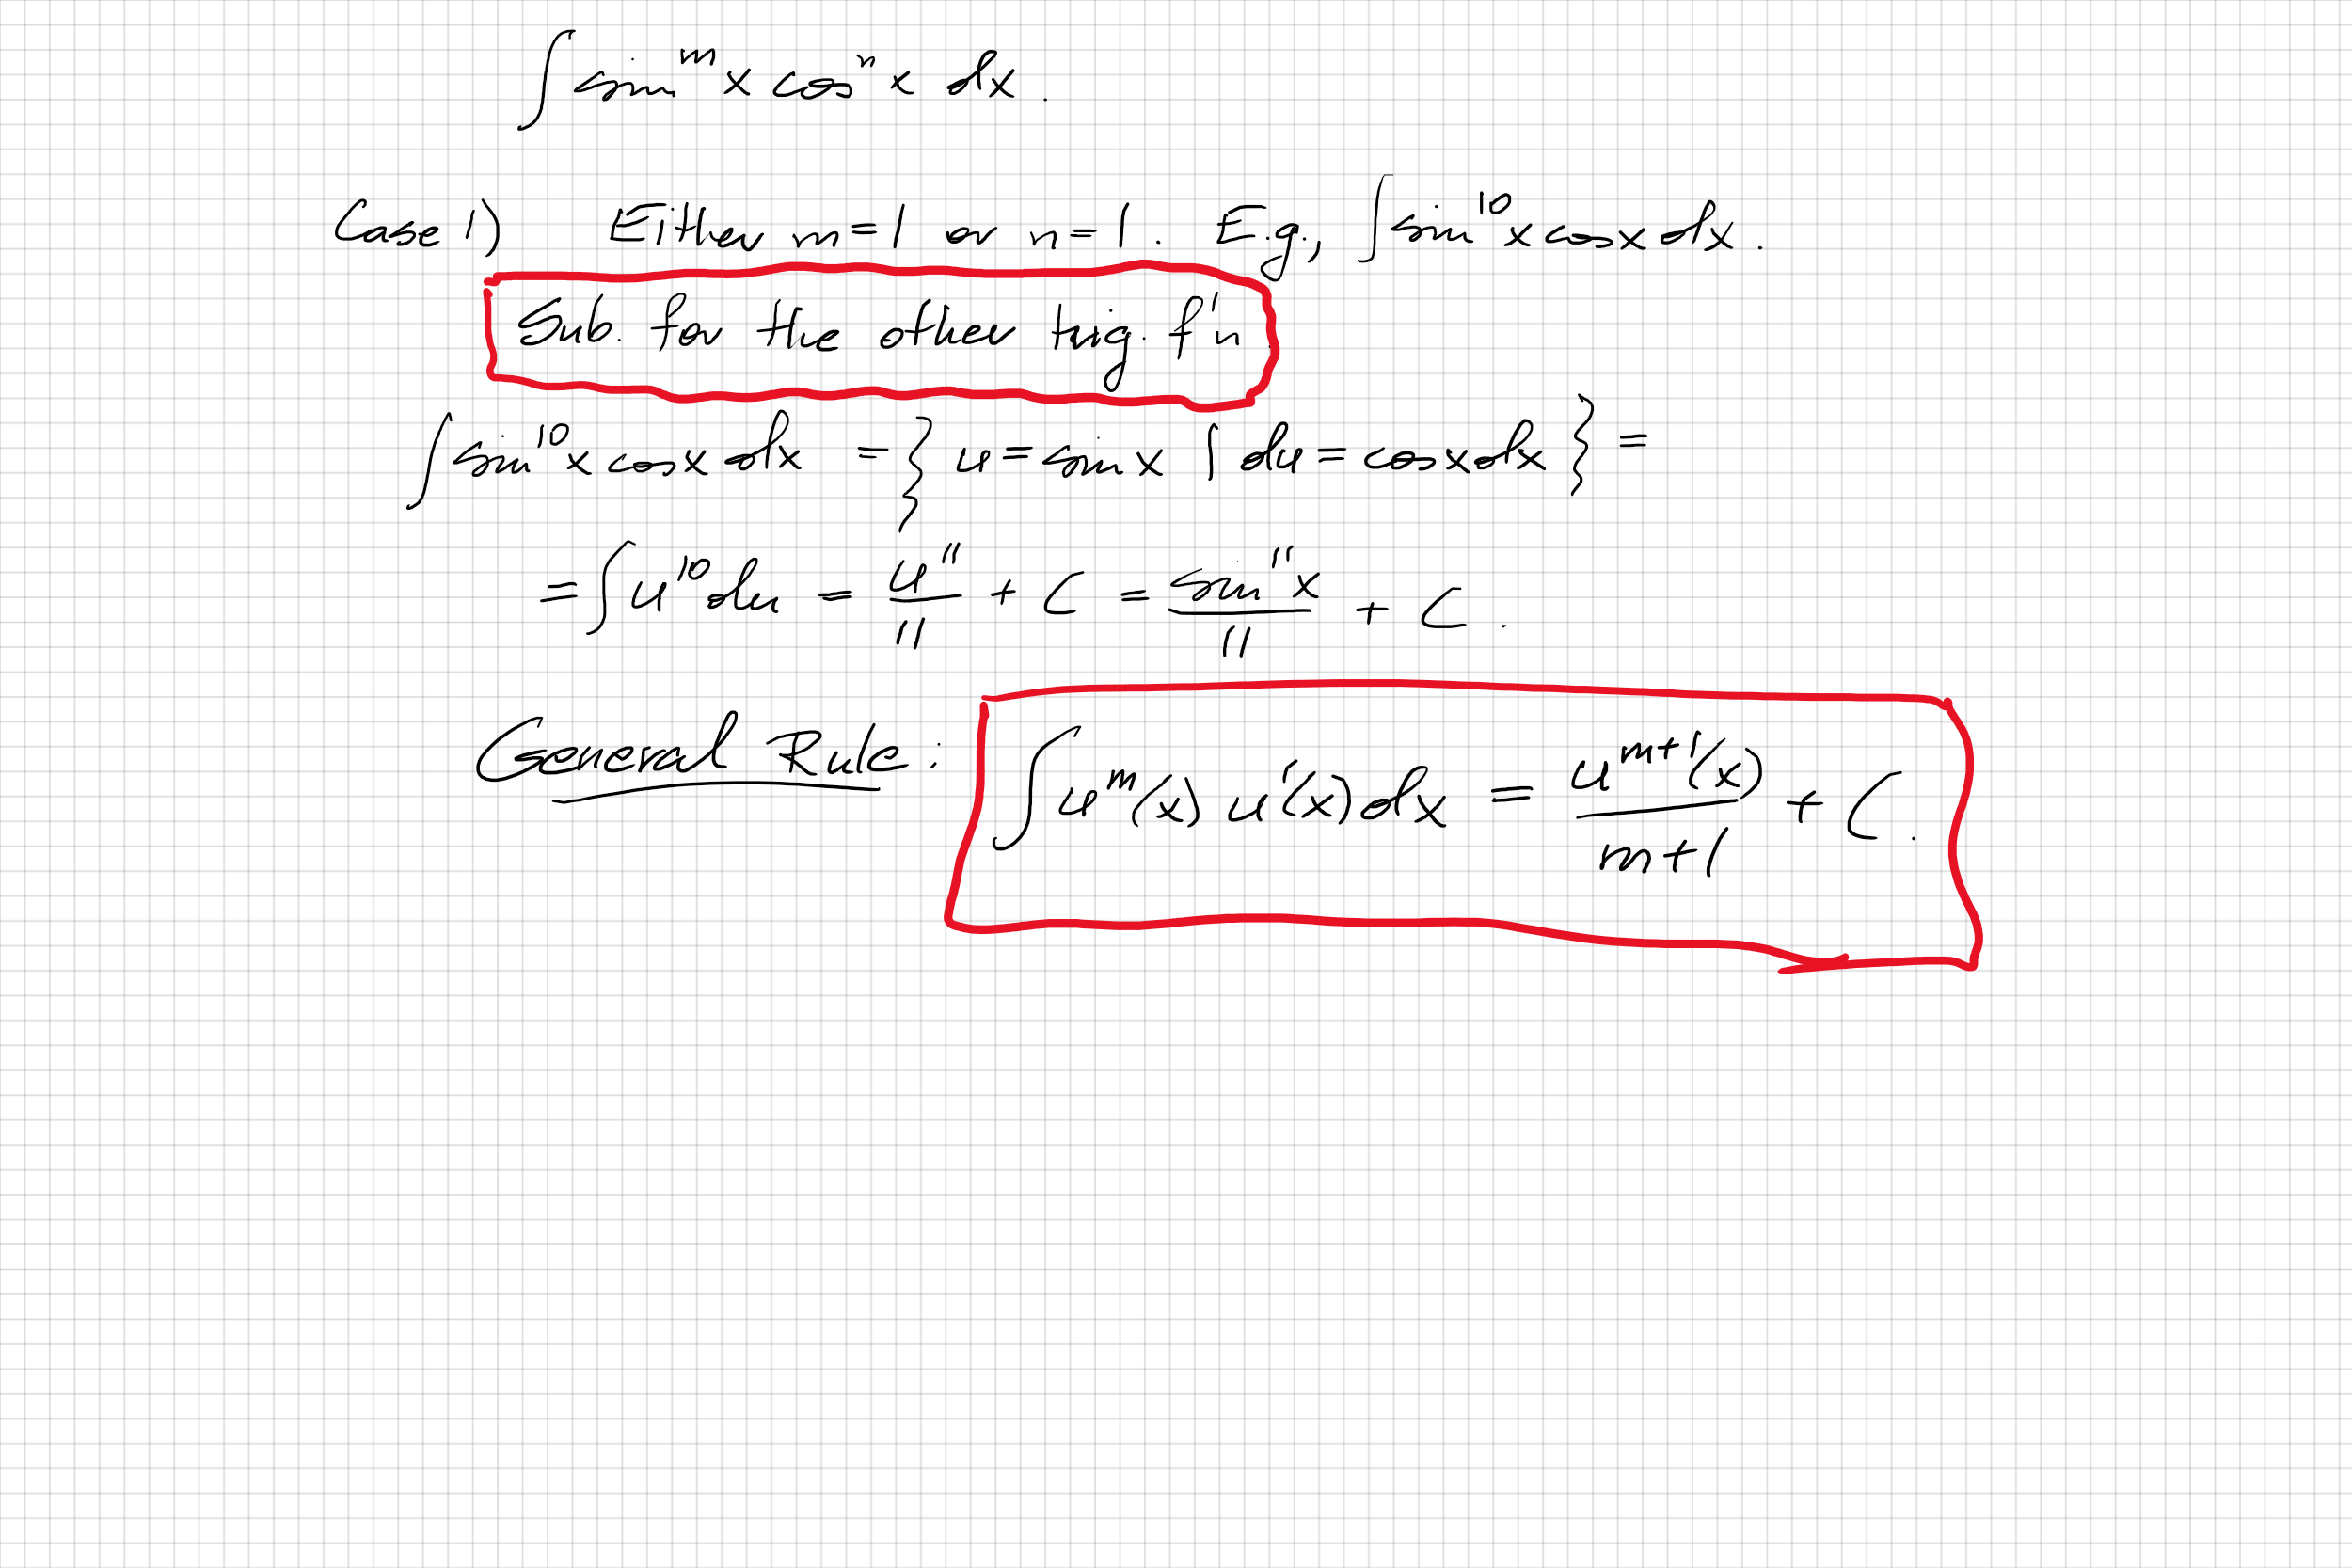 ∫ sin^m x cos^n x dx.
Case 1) Either m=1 or n=1. E.g., ∫ sin^10 x cos x dx.
Sub. for the other trig. f'n.
∫ sin^10 x cos x dx = { u = sin x | du = cos x dx } =
= ∫ u^10 du = u^11/11 + C = sin^11 x/11 + C.
General Rule: ∫ u^m(x) u'(x) dx = u^{m+1}(x)/(m+1) + C.